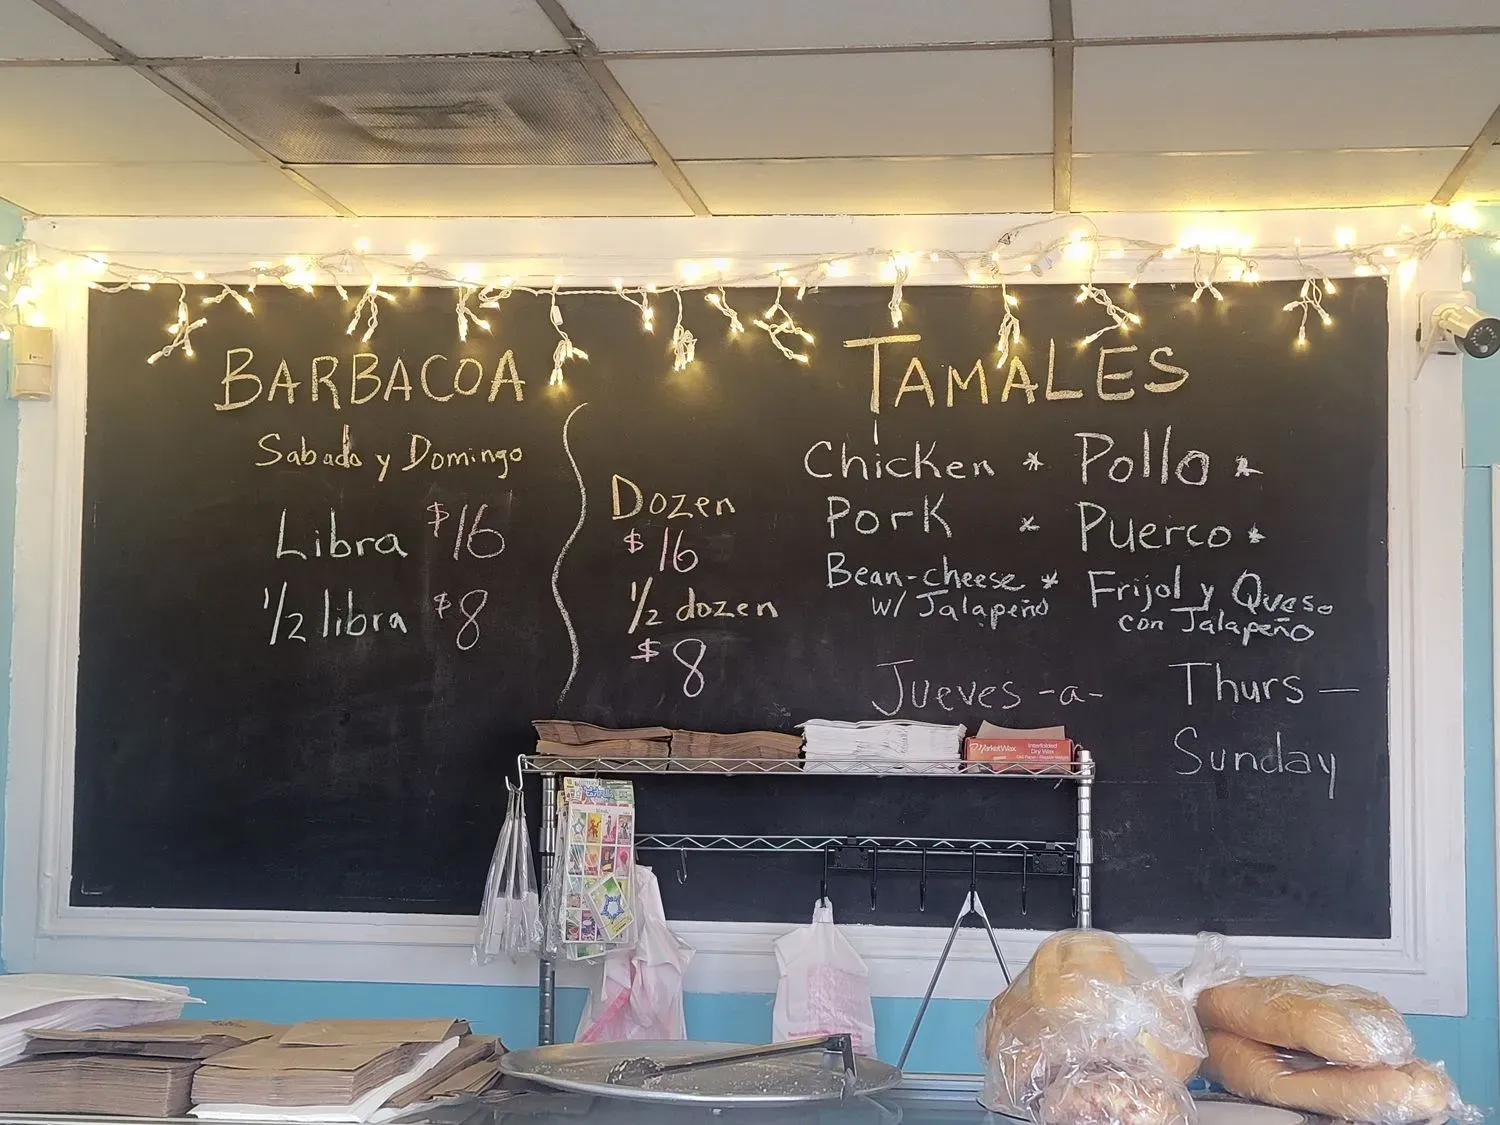 BARBACOA
Sabado y Domingo
Libra $16
1/2 libra $8
TAMALES
Dozen
$16
1/2 dozen
$8
Chicken * Pollo *
Pork * Puerco *
Bean-cheese * Frijol y Queso
w/ Jalapeño con Jalapeño
Jueves -a- Thurs —
Sunday
MarketWax Interfolded
Dry Wax